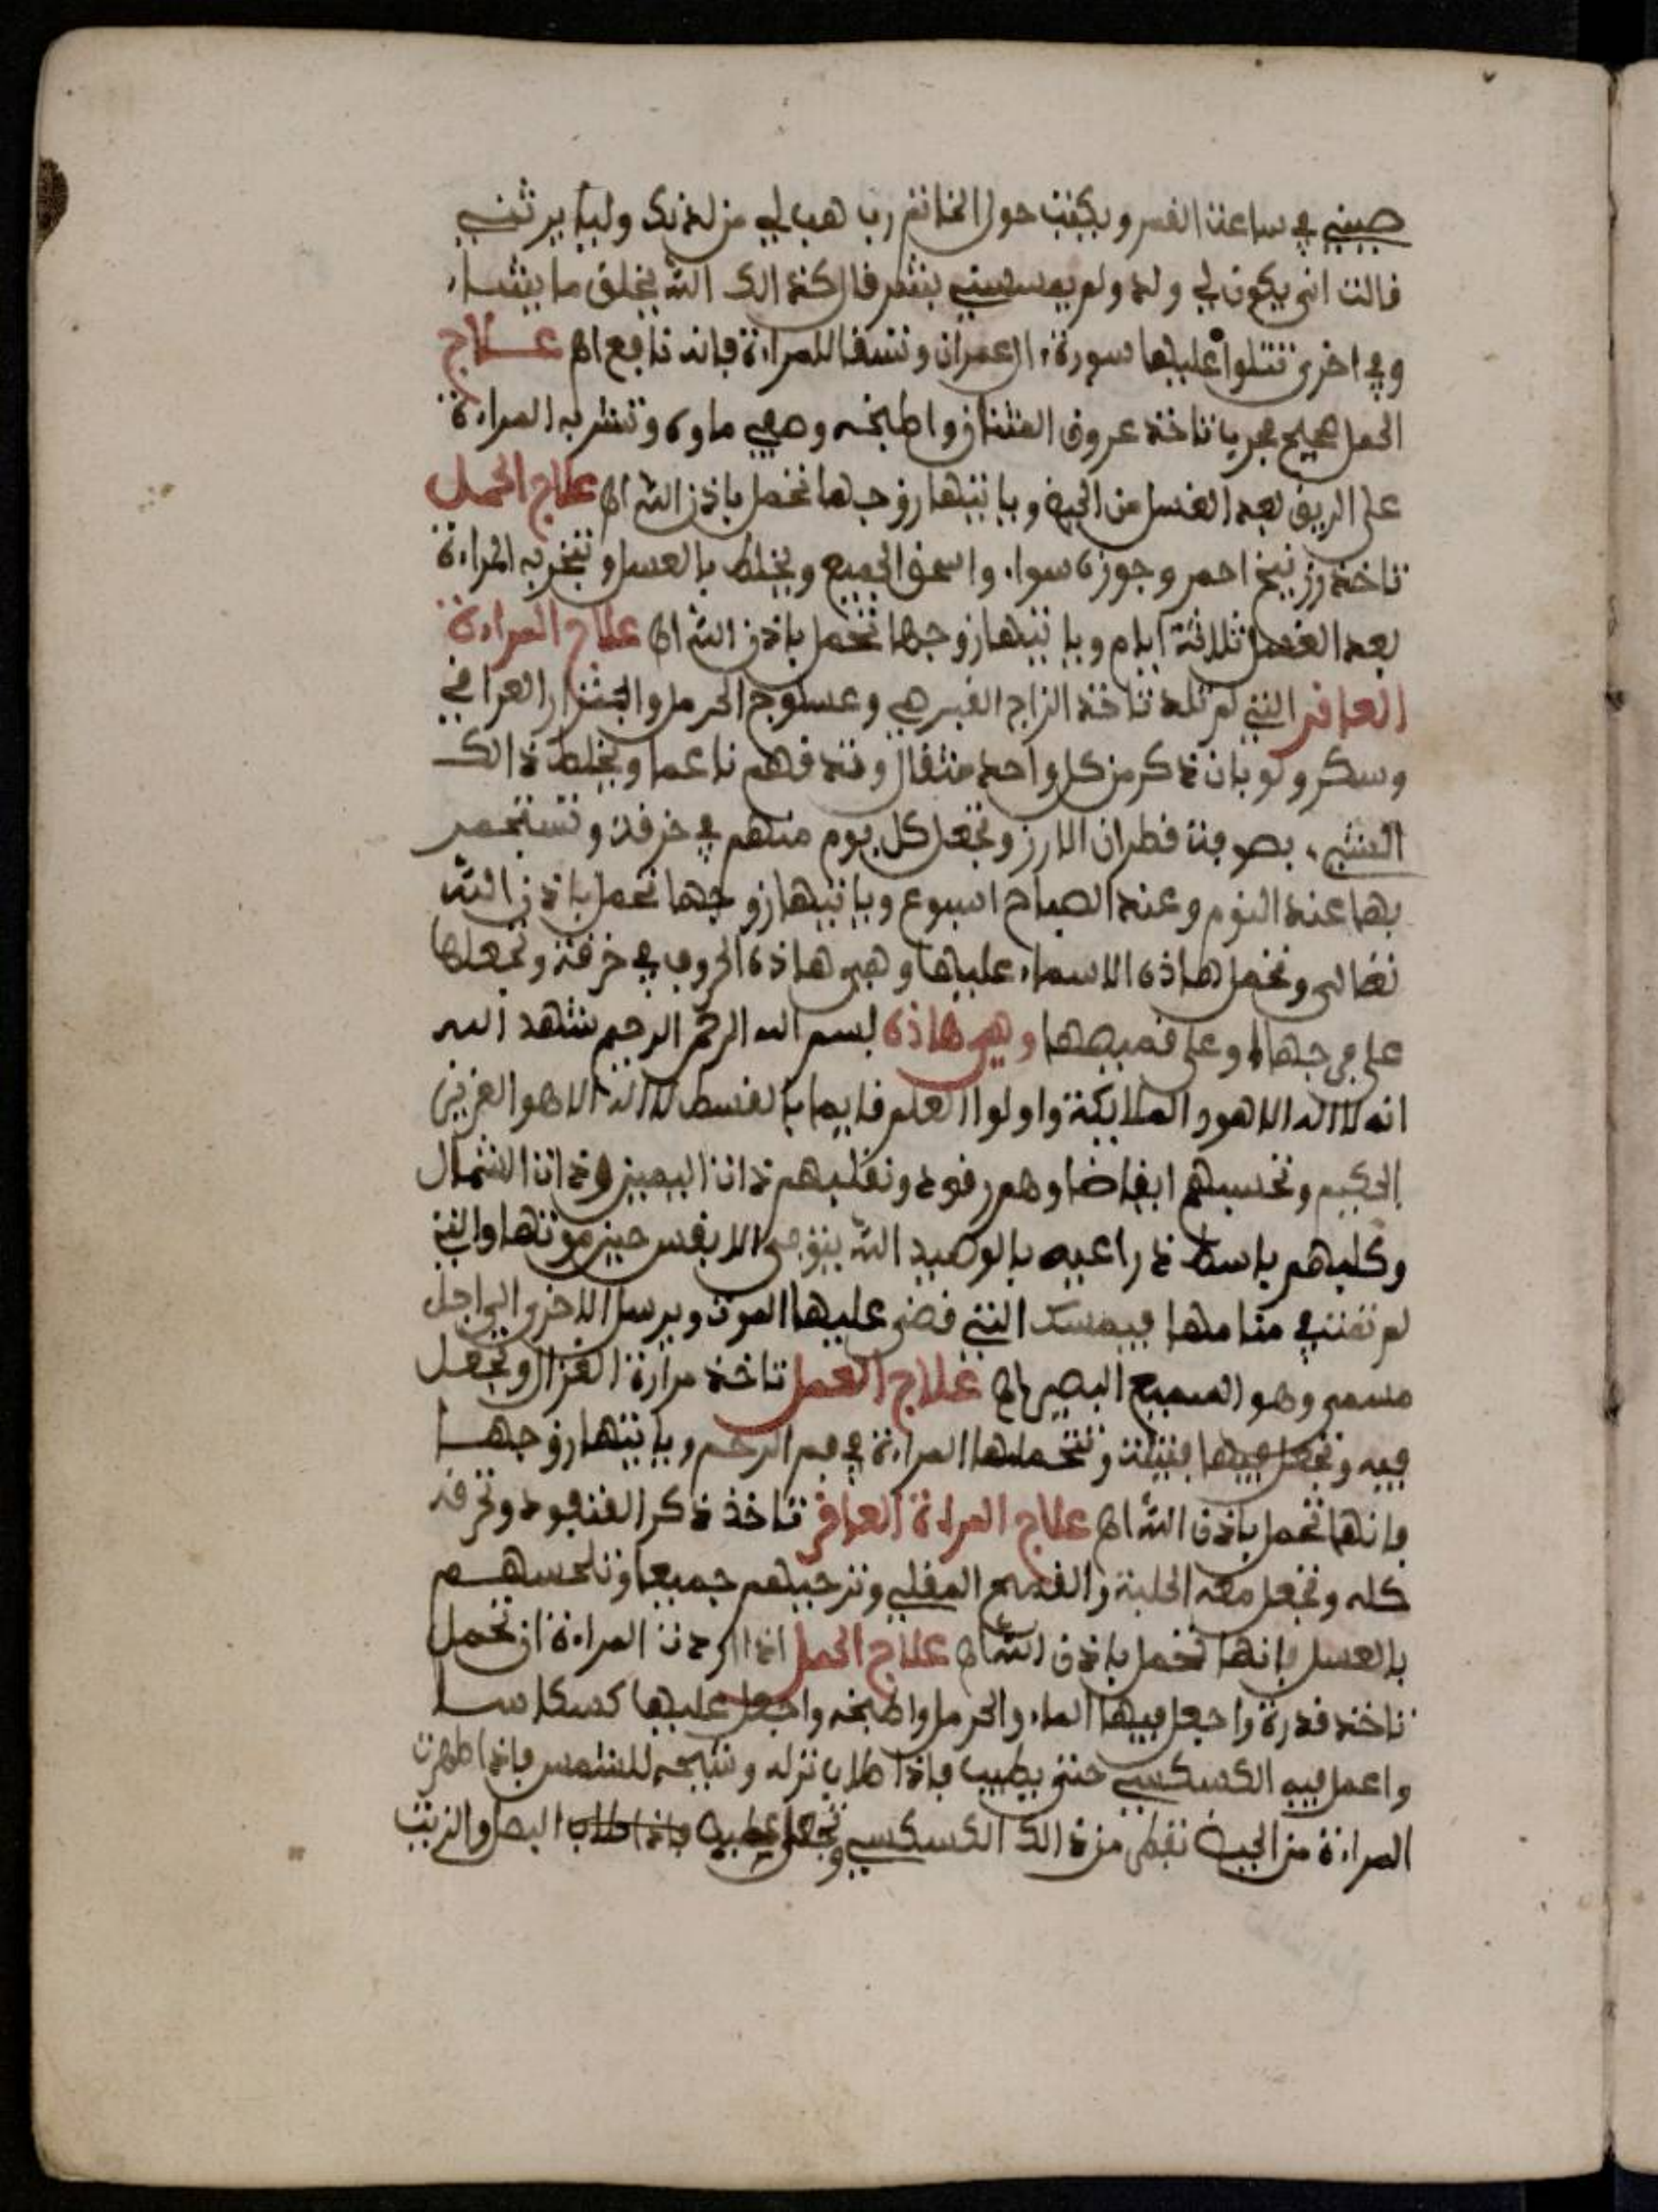 صيني في ساعت القمر ويكتب حول الخاتم رب هب لي من لدنك وليا يرثني
قالت انى يكون لي ولد ولم يمسسني بشر قال كذالك الله يخلق ما يشاء
وفي اخرى تتلوا عليها سورة ال عمران وتسقا للمراءة فانه نافع اهـ عــلاج
الحمل صحيح مجرب تاخذ عروق القتاز واطبخه وصفي ماوه وتشربه المراءة
على الريق بعد الغسل من الحيض وياتيها زوجها تحمل باذن الله اهـ علاج الحمل
تاخذ زرنيخ احمر وجوزه سواء واسحق الجميع ويخلط بالعسل وتتبخر به المراءة
بعد الغسل ثلاثة ايام وياتيها زوجها تحمل باذن الله اهـ علاج المراءة
العاقر التي لم تلد تاخذ الزاج القبرصي وعسلوج الحرمل والجنزار العراقي
وسكر ولوبان ذكر من كل واحد مثقال وتدقهم ناعما ويخلط ذالك
الشيء بصوفة قطران الارز وتجعل كل يوم منهم في خرقة وتستجمر
بها عند النوم وعند الصباح اسبوع وياتيها زوجها تحمل باذن الله
تعالى وتحمل هاذه الاسماء عليها وهي هاذه الحروف في خرقة وتجعلها
على فرجها او على قميصها وهي هاذه بسم الله الرحمن الرحيم شهد الله
انه لا اله الا هو والملايكة واولوا العلم قايما بالقسط لا اله الا هو العزيز
الحكيم وتحسبهم ايقاضا وهم رقود ونقلبهم ذات اليمين وذات الشمال
وكلبهم باسط ذراعيه بالوصيد الله يتوفى الانفس حين موتها والتي
لم تمت في منامها فيمسك التي قضى عليها الموت ويرسل الاخرى الى اجل
مسمى وهو السميع البصير اهـ علاج العمل تاخذ مرارة الغزال وتجعل
فيه وتجعل فيها فتيلة وتتحملها المراءة في فم الرحم وياتيها زوجهــا
فانها تحمل باذن الله اهـ علاج المراءة العاقر تاخذ ذكر القنفود وتحرقه
كله وتجعل معه الحلبة والقمح المقلي وترحيهم جميعا وتلحسهــم
بالعسل فانها تحمل باذن الله اهـ علاج الحمل اذا اردت المراءة ان تحمل
تاخذ قدرة واجعل فيها الماء والحرمل واطبخه واجعل عليها كسكاسـا
واعمل فيه الكسكسي حتى يطيب فاذا طاب نزله وتيبحه للشمس فاذا طهرت
المراءة من الحيض تفطر من ذالك الكسكسي وتجعل عليه فاذا طاب البصل والزيت